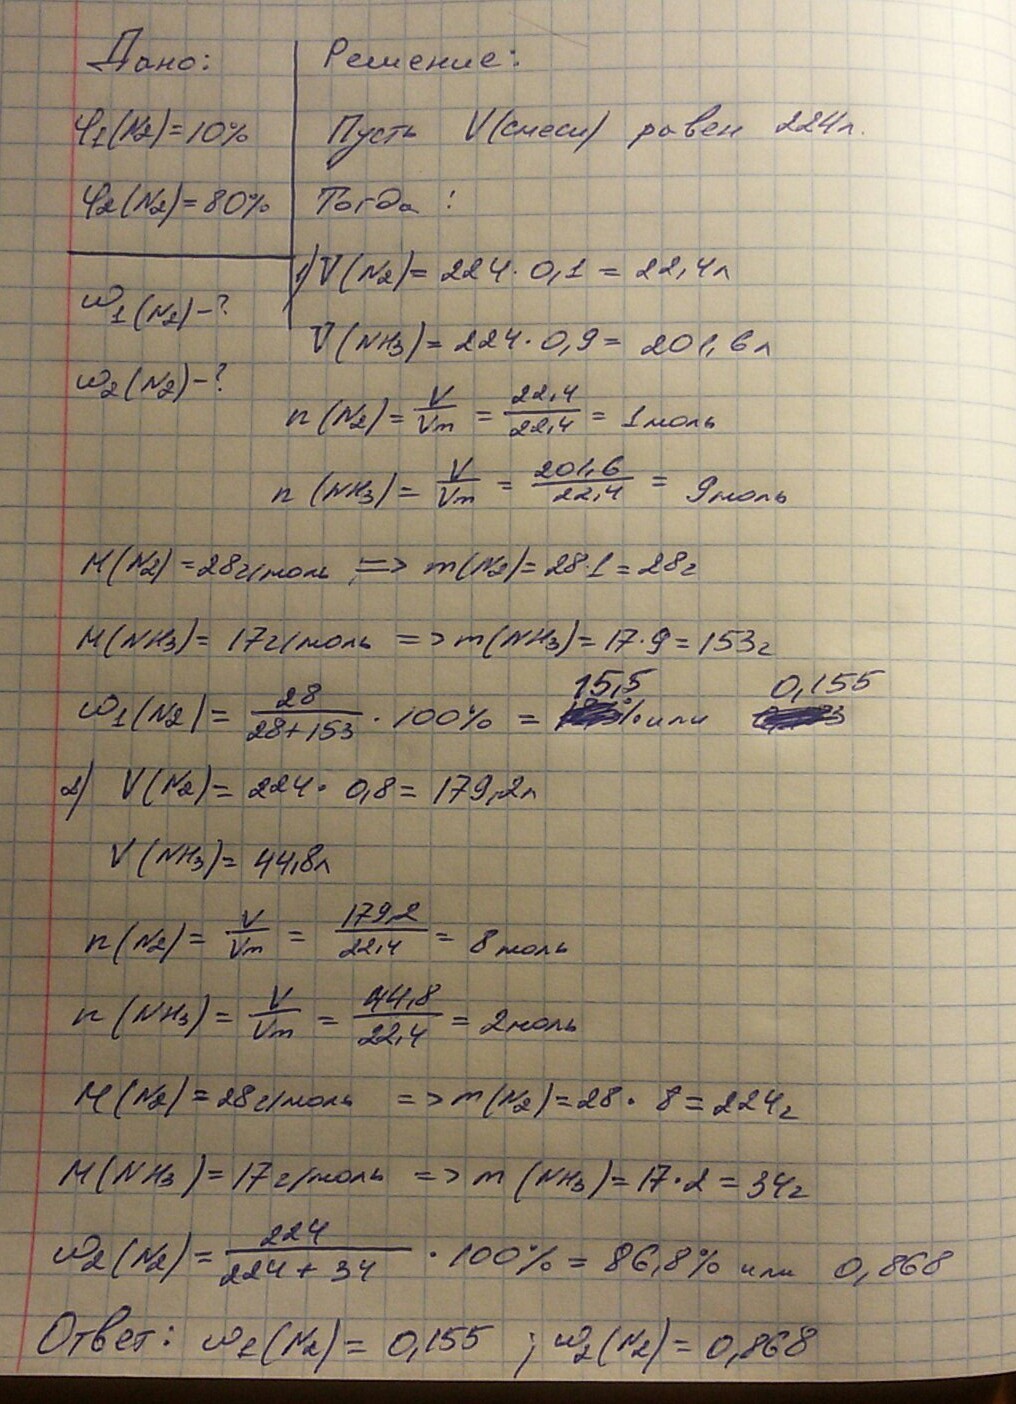 Дано: Решение:
φ1(N2)=10% Пусть V(смеси) равен 224л.
φ2(N2)=80% Тогда:
1) V(N2)= 224·0,1 = 22,4л
ω1(N2)-?
V(NH3)= 224·0,9= 201,6л
ω2(N2)-?
n(N2)= V/Vm = 22,4/22,4 = 1моль
n(NH3)= V/Vm = 201,6/22,4 = 9моль
M(N2)=28г/моль => m(N2)=28·1=28г
M(NH3)= 17г/моль => m(NH3)=17·9=153г
ω1(N2)= 28/(28+153) ·100% = 15,5% или 0,155
2) V(N2)= 224· 0,8= 179,2л
V(NH3)= 44,8л
n(N2)= V/Vm = 179,2/22,4 = 8моль
n(NH3)= V/Vm = 44,8/22,4 = 2моль
M(N2)=28г/моль => m(N2)=28· 8=224г
M(NH3)=17г/моль => m(NH3)=17·2=34г
ω2(N2)= 224/(224+34) ·100%=86,8% или 0,868
Ответ: ω1(N2)= 0,155 ; ω2(N2)=0,868